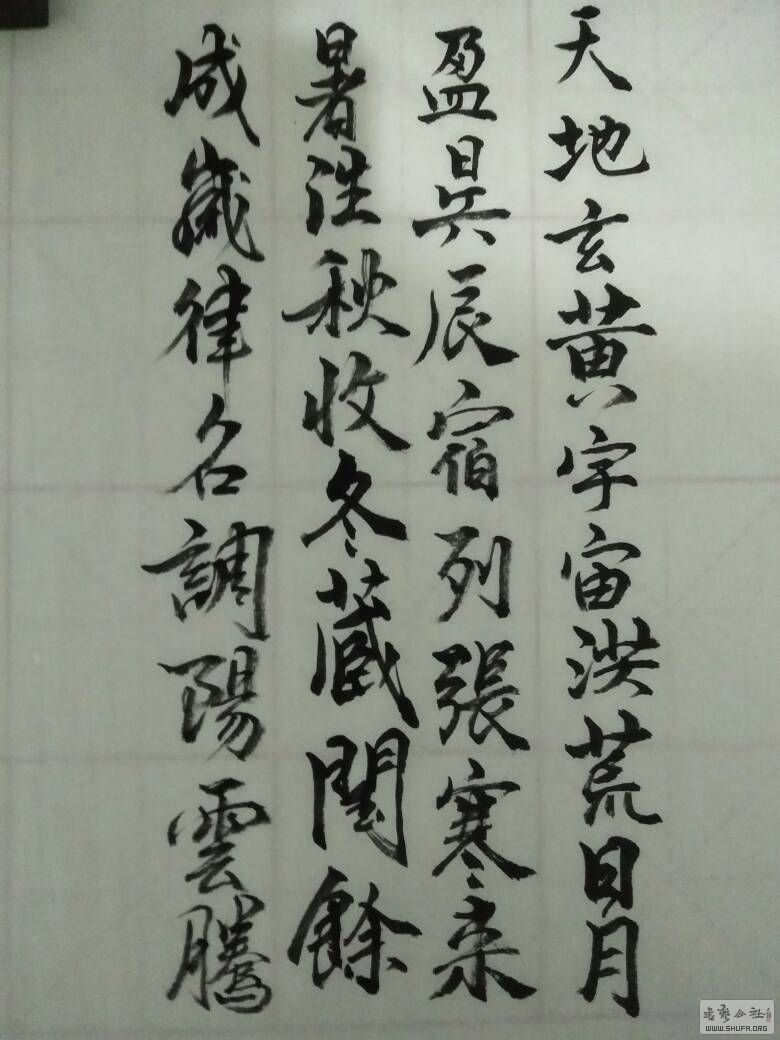 天地玄黄宇宙洪荒日月
盈昃辰宿列張寒来
暑往秋收冬藏閏餘
成歲律名調陽雲騰
書藝公社
WWW.SHUFA.ORG